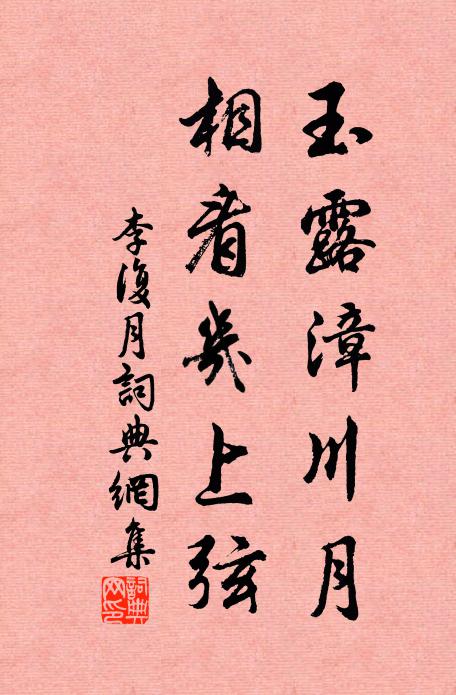 玉露漳川月
相看幾上弦
李復月詞典網集
詞典
网印